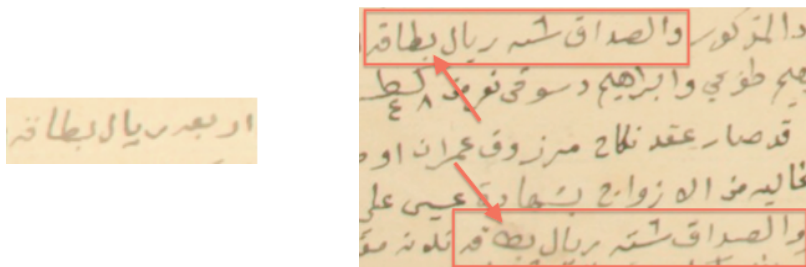 اربعه ريال بطاقه
د المذكور والصداق سته ريال بطاقه
هيم طوبجي وابراهيم دسوقى نفر من ٨ ط
٤
قد صار عقد نكاح مرزوق عمران او
خاليه من الازواج بشهادة عيسى على
والصداق سته ريال بطاقه ثلاثه